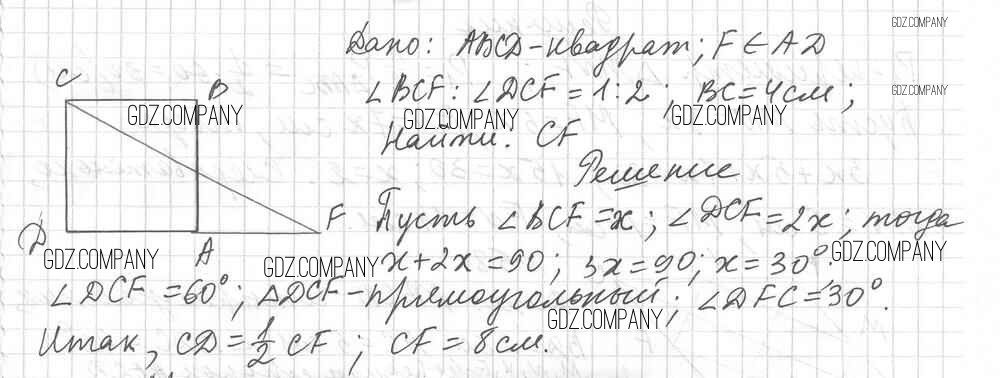 GDZ.COMPANY
Дано: ABCD-квадрат; F ∈ AD
C
B
∠BCF : ∠DCF = 1:2; BC = 4см;
GDZ.COMPANY
GDZ.COMPANY
GDZ.COMPANY
GDZ.COMPANY
Найти: CF
Решение
D
A
F
Пусть ∠BCF = x; ∠DCF = 2x; тогда
GDZ.COMPANY
GDZ.COMPANY
x + 2x = 90; 3x = 90; x = 30°.
GDZ.COMPANY
∠DCF = 60°; △DCF - прямоугольный; ∠DFC = 30°.
GDZ.COMPANY
Итак, CD = 1/2 CF; CF = 8см.